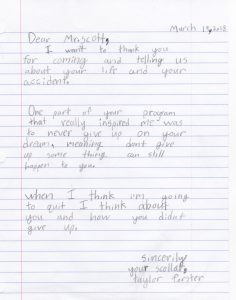 March 19, 2018
Dear Mr.scott,
I want to thank you
for coming and telling us
about your life and your
accident.
One part of your program
that really inspired me was
to never give up on your
dream, meaning dont give
up some thing can still
happen to you.
when I think im going
to quit I think about
you and how you didnt
give up.
sincerily
your scollar,
taylor forster